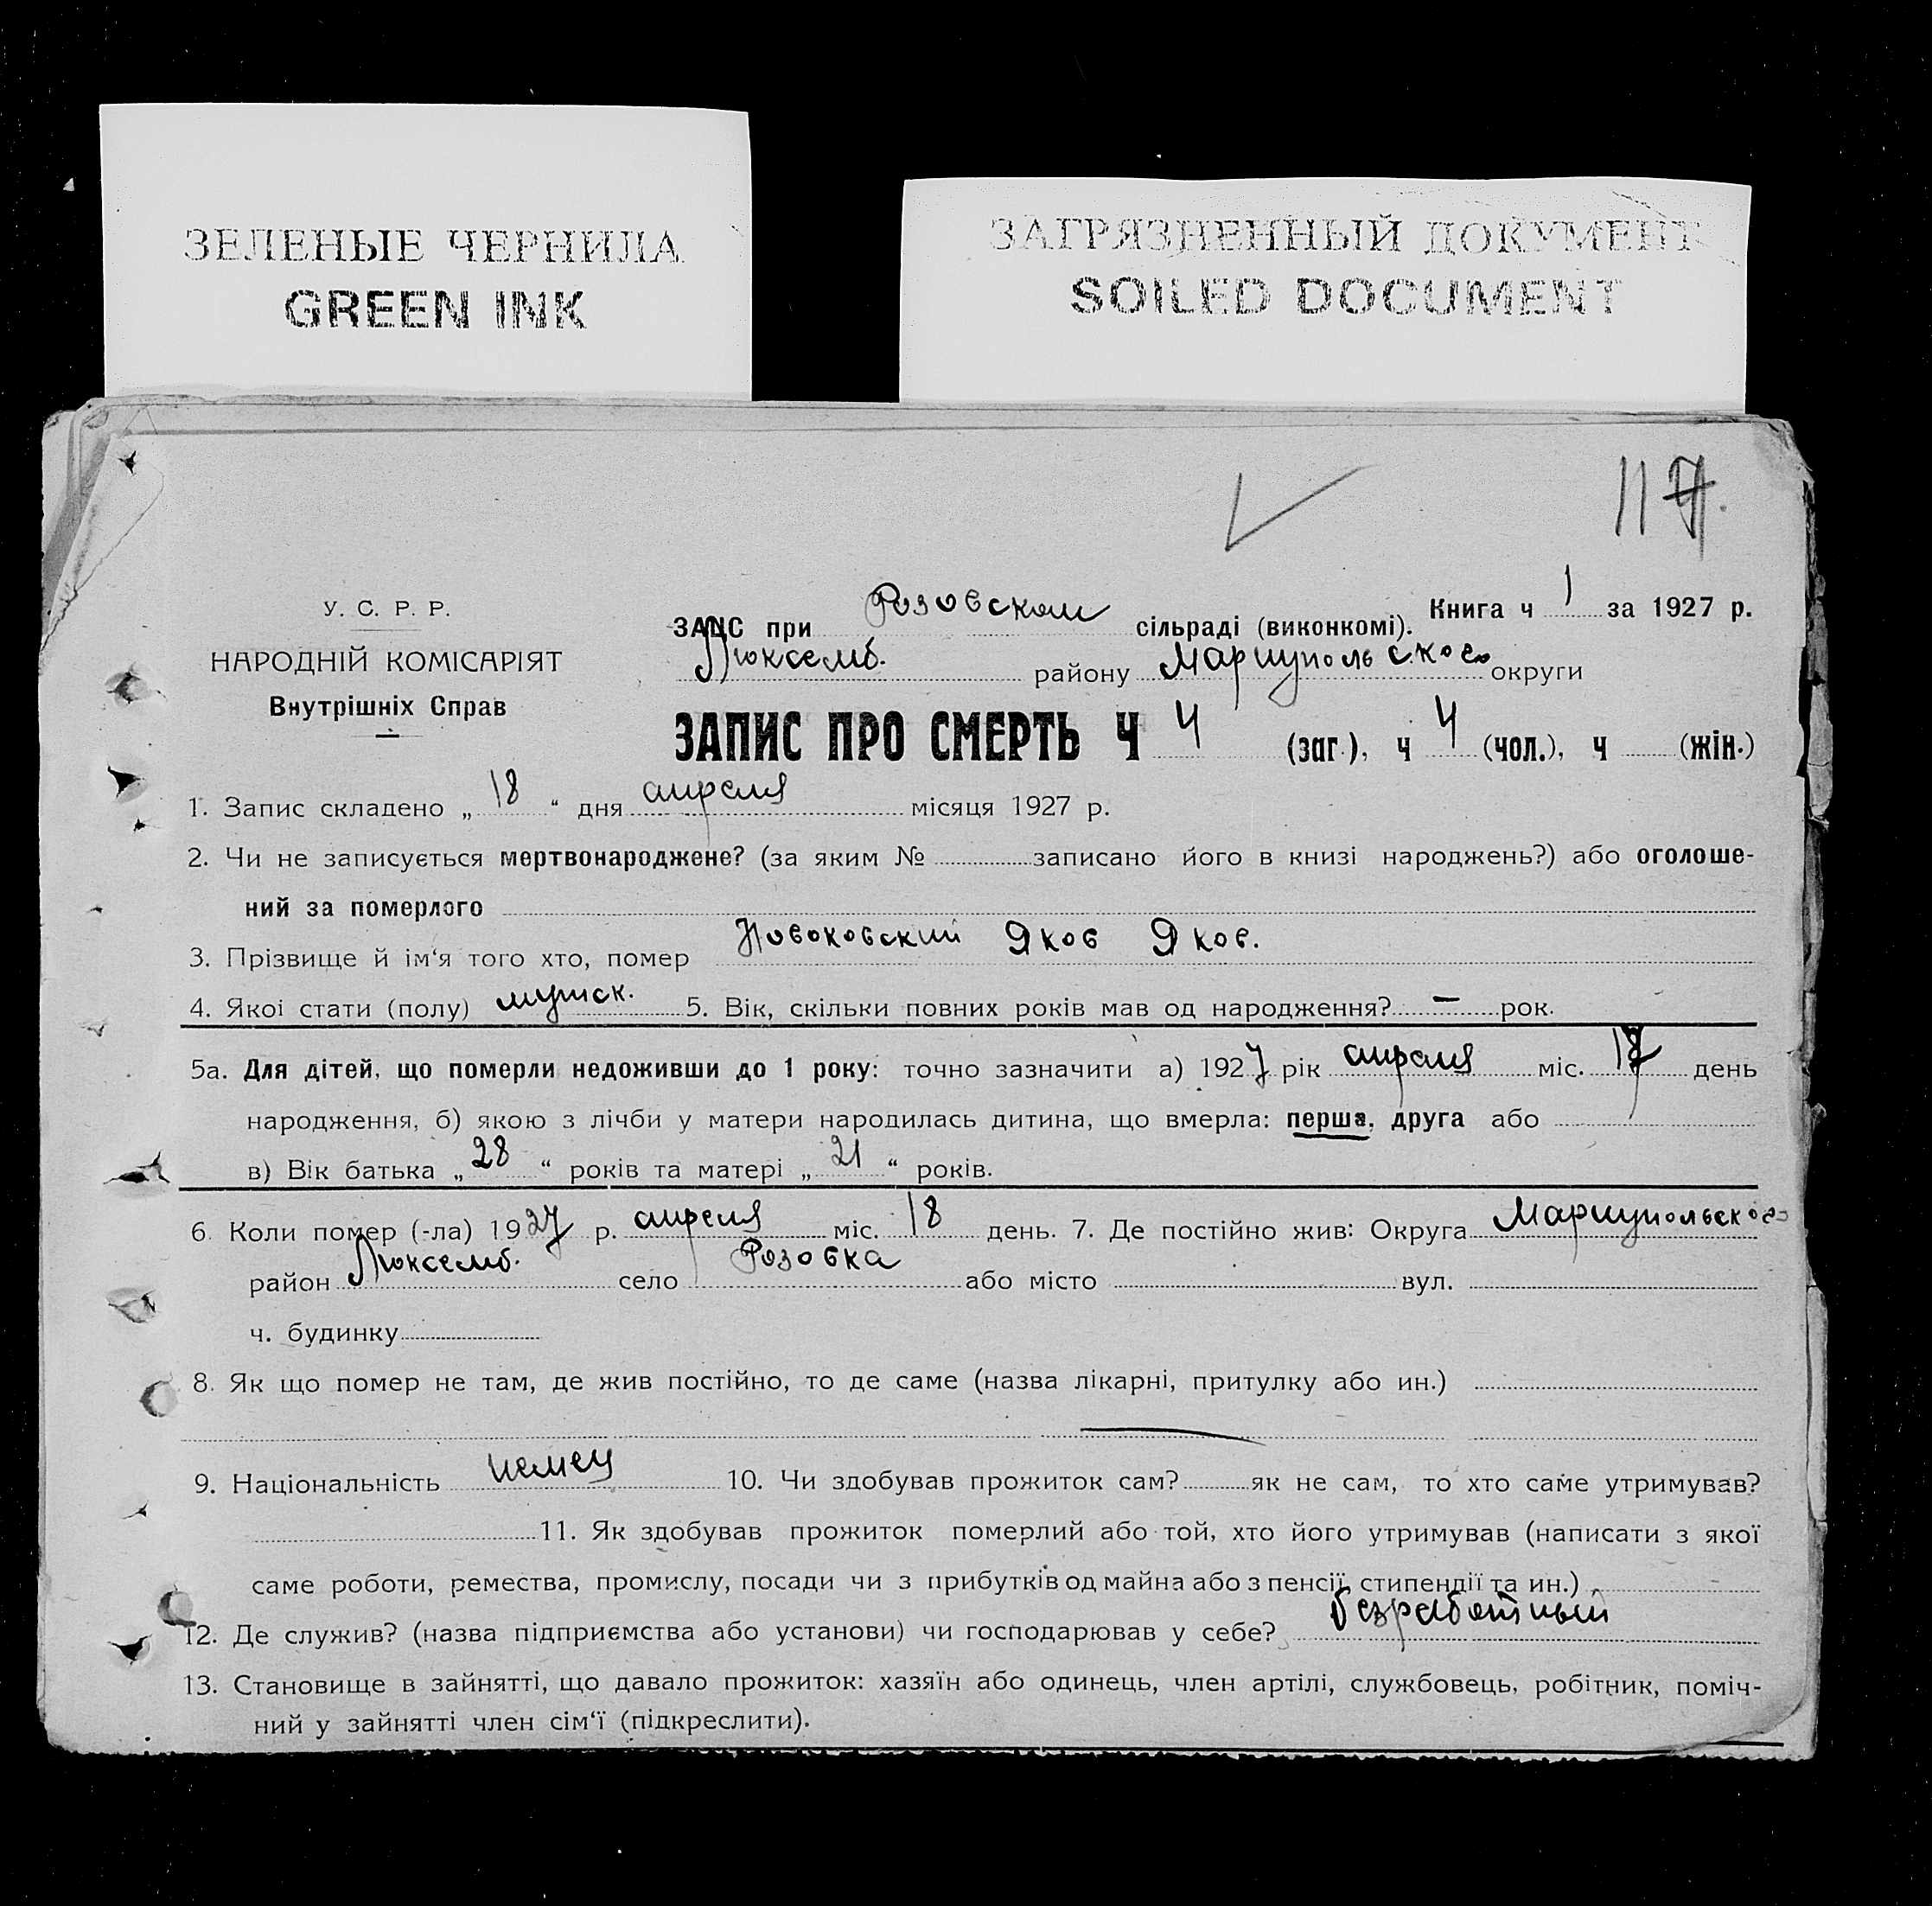 ЗЕЛЕНЫЕ ЧЕРНИЛА
GREEN INK
ЗАГРЯЗНЕННЫЙ ДОКУМЕНТ
SOILED DOCUMENT
117.
У. С. Р. Р.
НАРОДНІЙ КОМІСАРІЯТ
Внутрішніх Справ
ЗАЦС при Розовском сільраді (виконкомі). Книга ч 1 за 1927 р.
Люксемб. району Мариупольского округи
ЗАПИС ПРО СМЕРТЬ Ч 4 (заг.), ч 4 (чол.), ч (жін.)
1. Запис складено „ 18 “ дня апреля місяця 1927 р.
2. Чи не записується мертвонароджене? (за яким № записано його в книзі народжень?) або оголоше-
ний за померлого
3. Прізвище й ім‘я того хто, помер Новоковский Яков Яков.
4. Якоі стати (полу) мужск. 5. Вік, скільки повних років мав од народження? — рок.
5а. Для дітей, що померли недоживши до 1 року: точно зазначити а) 1927 рік апреля міс. день
народження, б) якою з лічби у матери народилась дитина, що вмерла: перша, друга або
в) Вік батька „ 28 “ років та матері „ 21 “ років.
6. Коли помер (-ла) 1927 р. апреля міс. 18 день. 7. Де постійно жив: Округа Мариупольского
район Люксемб. село Розовка або місто вул.
ч. будинку
8. Як що помер не там, де жив постійно, то де саме (назва лікарні, притулку або ин.)
9. Національність немец 10. Чи здобував прожиток сам? як не сам, то хто саме утримував?
11. Як здобував прожиток померлий або той, хто його утримував (написати з якої
саме роботи, ремества, промислу, посади чи з прибутків од майна або з пенсії, стипендії та ин.)
12. Де служив? (назва підприємства або установи) чи господарював у себе? безработный
13. Становище в зайнятті, що давало прожиток: хазяїн або одинець, член артілі, службовець, робітник, поміч-
ний у зайнятті член сім‘ї (підкреслити).